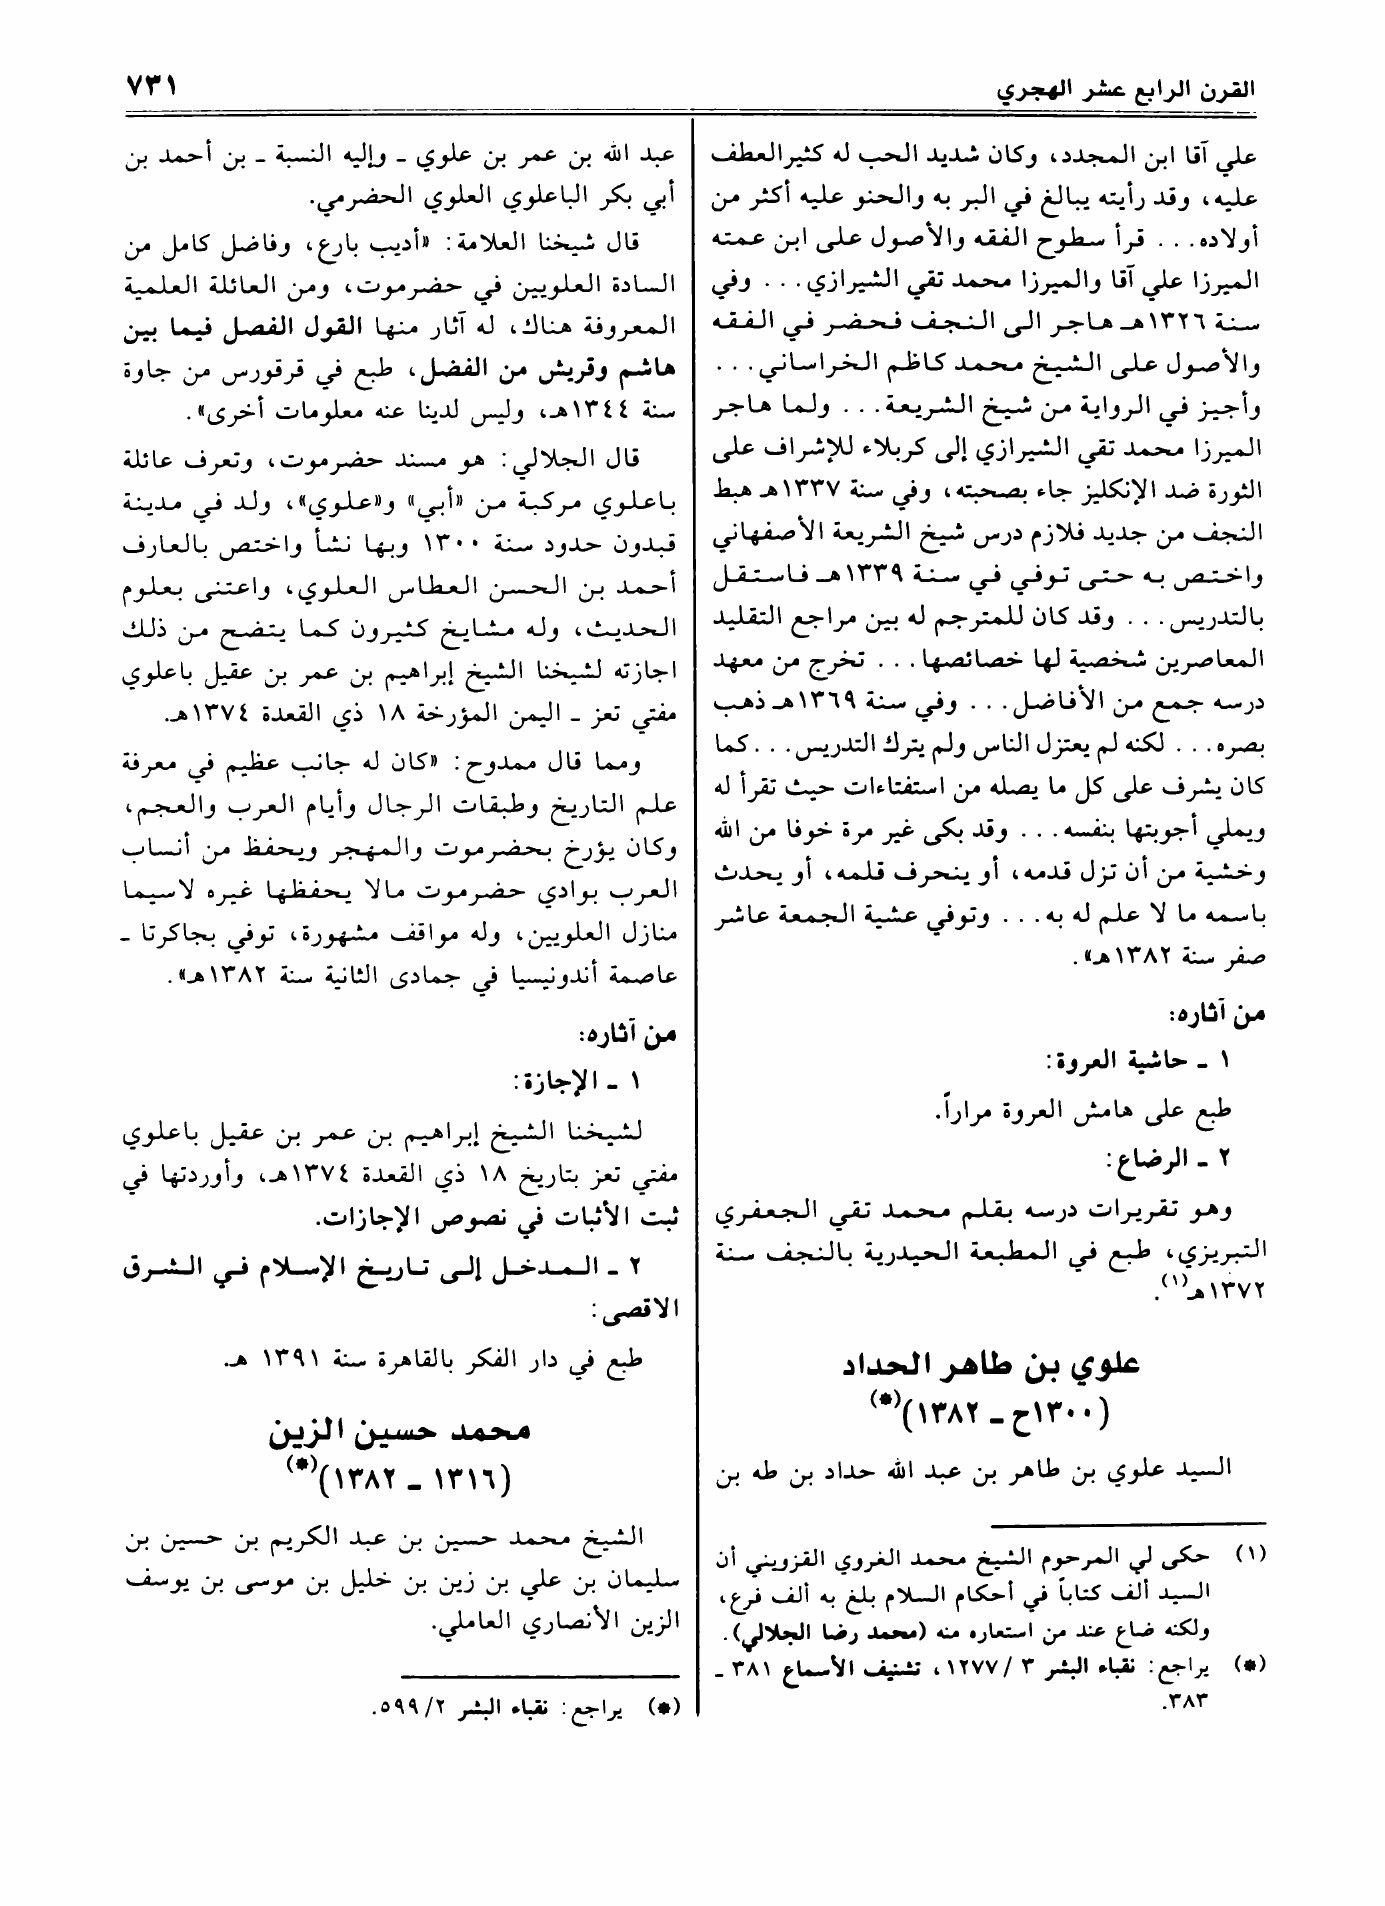 القرن الرابع عشر الهجري
٧٣١
علي آقا ابن المجدد، وكان شديد الحب له كثيرالعطف
عليه، وقد رأيته يبالغ في البر به والحنو عليه أكثر من
أولاده... قرأ سطوح الفقه والأصول على ابن عمته
الميرزا علي آقا والميرزا محمد تقي الشيرازي... وفي
سنة ١٣٢٦هـ هاجر الى النجف فحضر في الفقه
والأصول على الشيخ محمد كاظم الخراساني...
وأجيز في الرواية من شيخ الشريعة... ولما هاجر
الميرزا محمد تقي الشيرازي إلى كربلاء للإشراف على
الثورة ضد الإنكليز جاء بصحبته، وفي سنة ١٣٣٧هـ هبط
النجف من جديد فلازم درس شيخ الشريعة الأصفهاني
واختص به حتى توفي في سنة ١٣٣٩هـ فاستقل
بالتدريس... وقد كان للمترجم له بين مراجع التقليد
المعاصرين شخصية لها خصائصها... تخرج من معهد
درسه جمع من الأفاضل... وفي سنة ١٣٦٩هـ ذهب
بصره... لكنه لم يعتزل الناس ولم يترك التدريس...كما
كان يشرف على كل ما يصله من استفتاءات حيث تقرأ له
ويملي أجوبتها بنفسه... وقد بكى غير مرة خوفا من الله
وخشية من أن تزل قدمه، أو ينحرف قلمه، أو يحدث
باسمه ما لا علم له به... وتوفي عشية الجمعة عاشر
صفر سنة ١٣٨٢هـ».
من آثاره:
١ ـ حاشية العروة:
طبع على هامش العروة مراراً.
٢ ـ الرضاع:
وهو تقريرات درسه بقلم محمد تقي الجعفري
التبريزي، طبع في المطبعة الحيدرية بالنجف سنة
١٣٧٢هـ(١).
علوي بن طاهر الحداد
(١٣٠٠ح ـ ١٣٨٢)(*)
السيد علوي بن طاهر بن عبد الله حداد بن طه بن
(١) حكى لي المرحوم الشيخ محمد الغروي القزويني أن
السيد ألف كتاباً في أحكام السلام بلغ به ألف فرع،
ولكنه ضاع عند من استعاره منه (محمد رضا الجلالي).
(*) يراجع: نقباء البشر ٣/ ١٢٧٧، تشنيف الأسماع ٣٨١ ـ
٣٨٣.
عبد الله بن عمر بن علوي ـ وإليه النسبة ـ بن أحمد بن
أبي بكر الباعلوي العلوي الحضرمي.
قال شيخنا العلامة: «أديب بارع، وفاضل كامل من
السادة العلويين في حضرموت، ومن العائلة العلمية
المعروفة هناك، له آثار منها القول الفصل فيما بين
هاشم وقريش من الفضل، طبع في قرقورس من جاوة
سنة ١٣٤٤هـ، وليس لدينا عنه معلومات أخرى».
قال الجلالي: هو مسند حضرموت، وتعرف عائلة
باعلوي مركبة من «أبي» و«علوي»، ولد في مدينة
قبدون حدود سنة ١٣٠٠ وبها نشأ واختص بالعارف
أحمد بن الحسن العطاس العلوي، واعتنى بعلوم
الحديث، وله مشايخ كثيرون كما يتضح من ذلك
اجازته لشيخنا الشيخ إبراهيم بن عمر بن عقيل باعلوي
مفتي تعز ـ اليمن المؤرخة ١٨ ذي القعدة ١٣٧٤هـ.
ومما قال ممدوح: «كان له جانب عظيم في معرفة
علم التاريخ وطبقات الرجال وأيام العرب والعجم،
وكان يؤرخ بحضرموت والمهجر ويحفظ من أنساب
العرب بوادي حضرموت مالا يحفظها غيره لاسيما
منازل العلويين، وله مواقف مشهورة، توفي بجاكرتا ـ
عاصمة أندونيسيا في جمادى الثانية سنة ١٣٨٢هـ».
من آثاره:
١ ـ الإجازة:
لشيخنا الشيخ إبراهيم بن عمر بن عقيل باعلوي
مفتي تعز بتاريخ ١٨ ذي القعدة ١٣٧٤هـ، وأوردتها في
ثبت الأثبات في نصوص الإجازات.
٢ ـ المدخل إلى تاريخ الإسلام في الشرق
الاقصى:
طبع في دار الفكر بالقاهرة سنة ١٣٩١ هـ.
محمد حسين الزين
(١٣١٦ ـ ١٣٨٢)(*)
الشيخ محمد حسين بن عبد الكريم بن حسين بن
سليمان بن علي بن زين بن خليل بن موسى بن يوسف
الزين الأنصاري العاملي.
(*) يراجع: نقباء البشر ٢/ ٥٩٩.